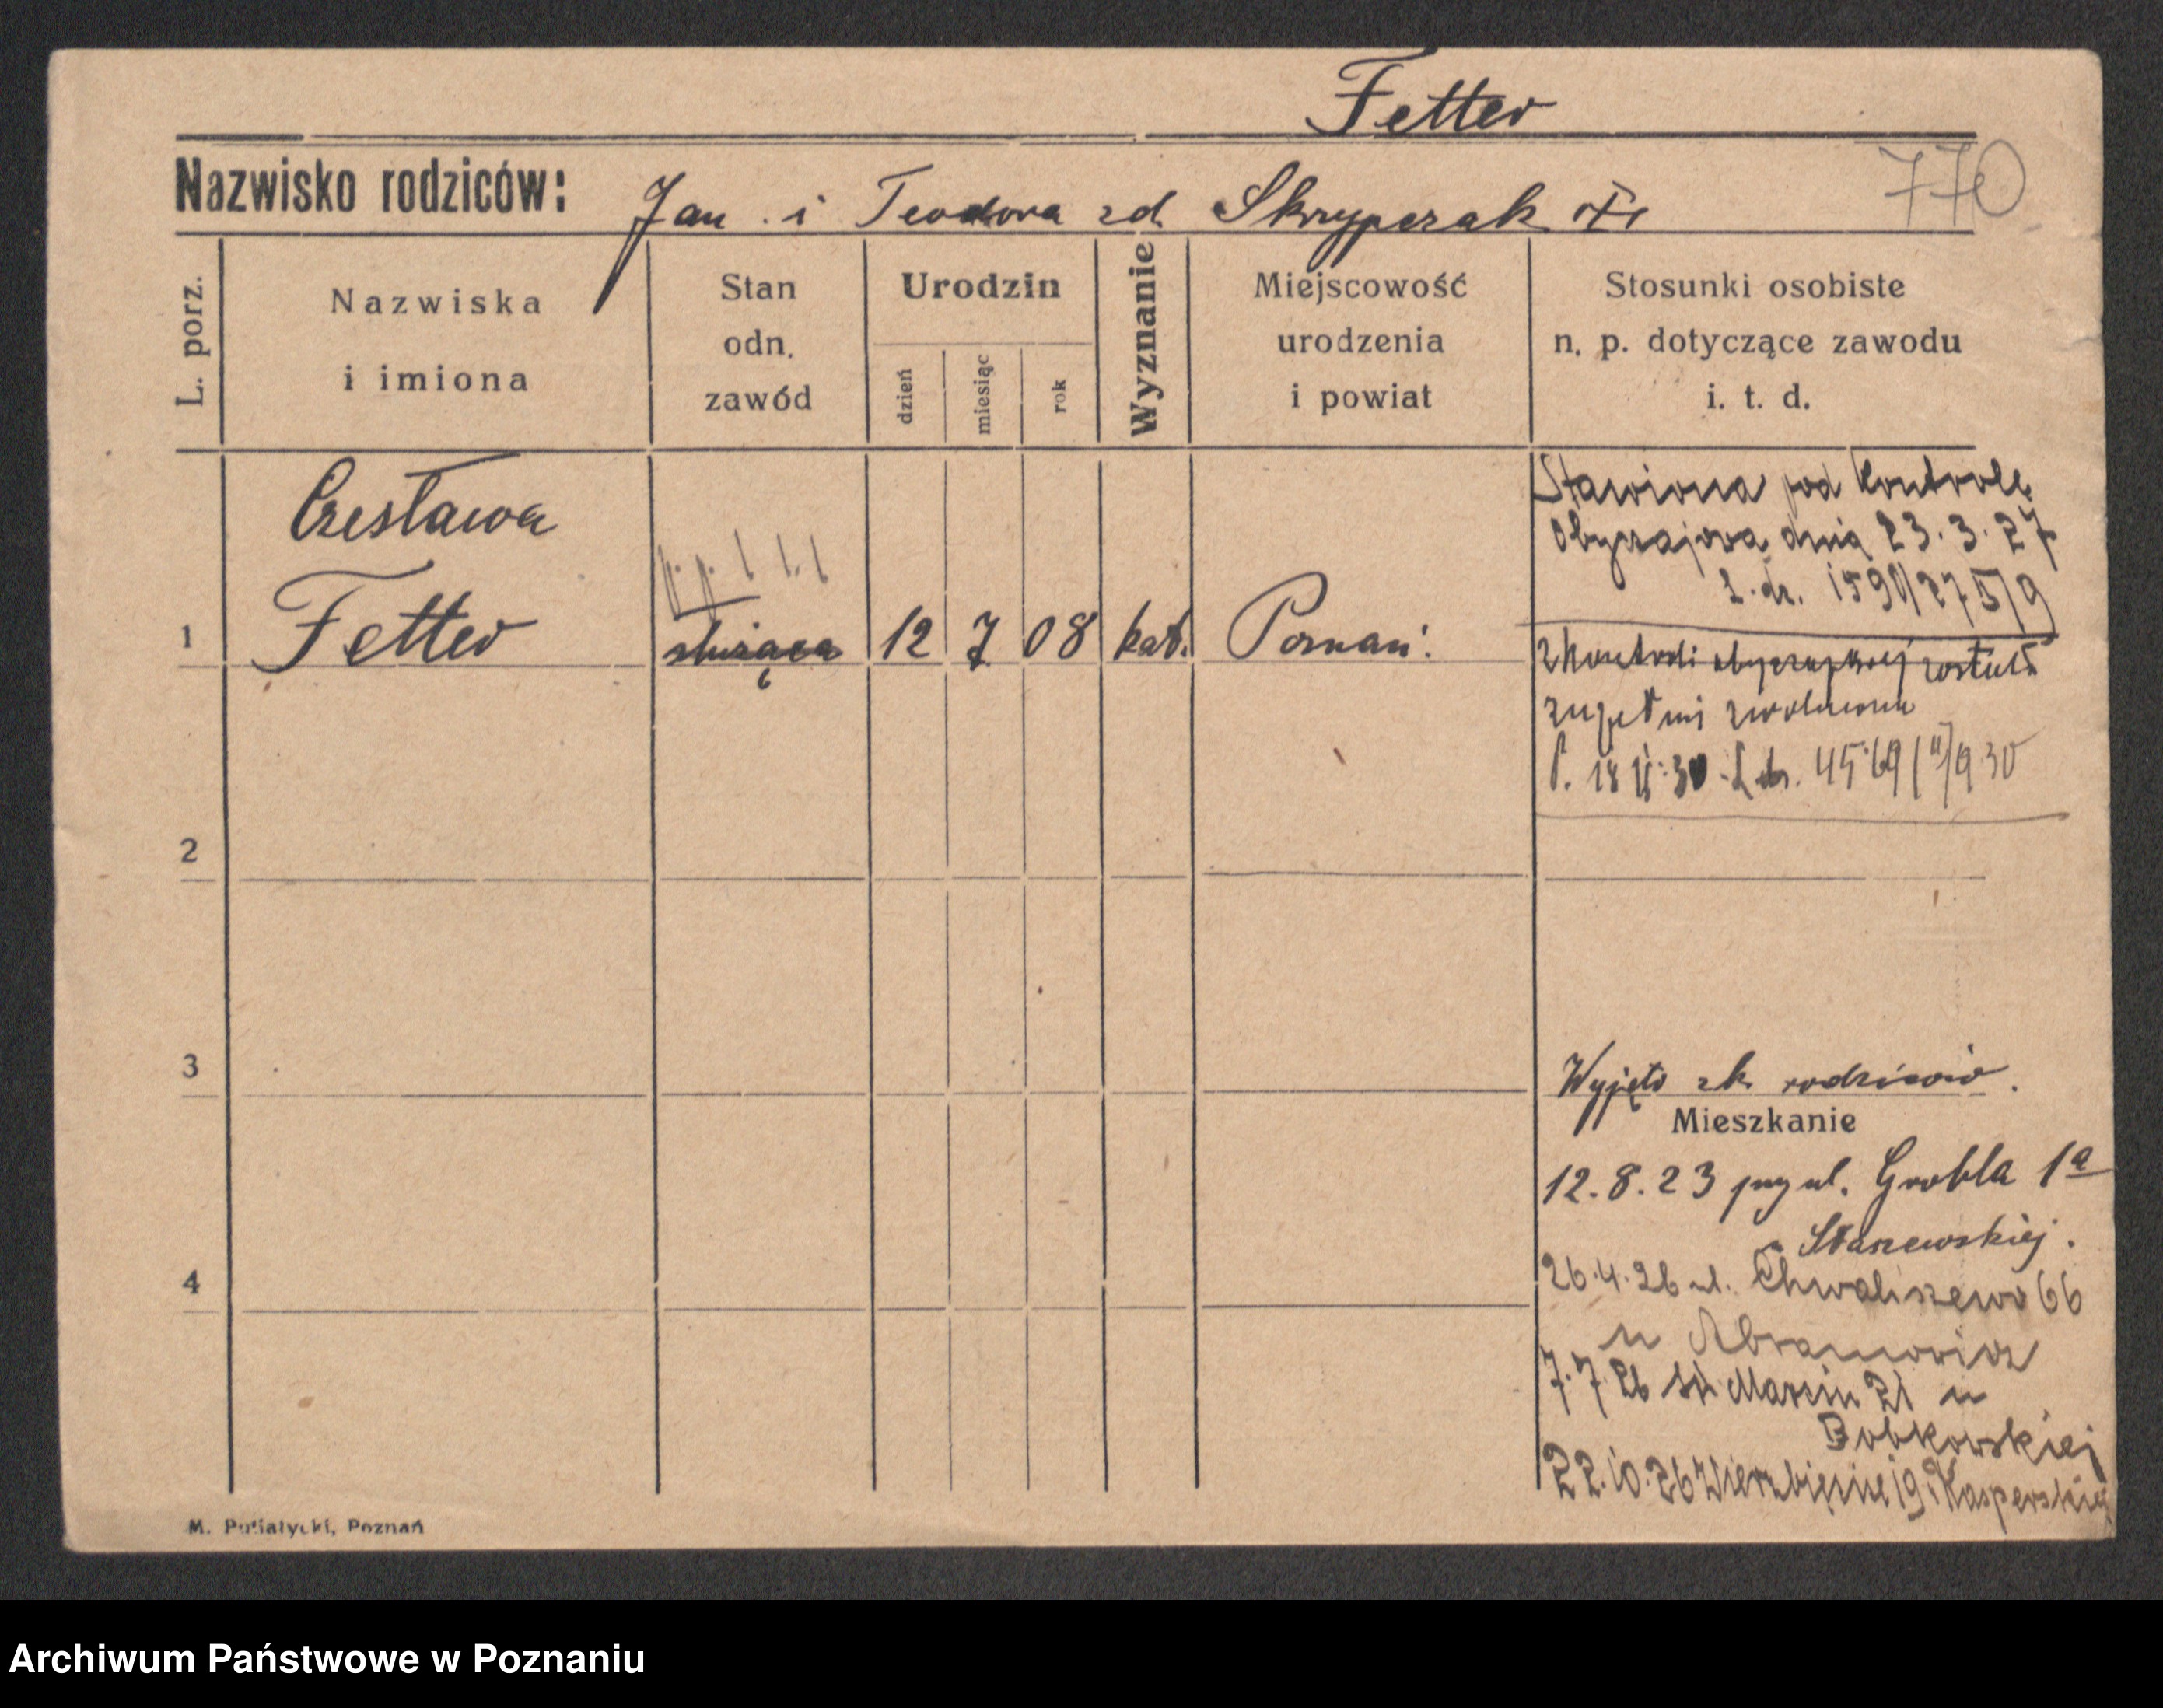 Fetter
Nazwisko rodziców: Jan i Teodora zd Skrzypczak
770
L. porz.
Nazwiska
i imiona
Stan
odn.
zawód
Urodzin
dzień
miesiąc
rok
Wyznanie
Miejscowość
urodzenia
i powiat
Stosunki osobiste
n. p. dotyczące zawodu
i. t. d.
1
Czesława
Fetter
służąca
12 7 08 kat. Poznań.
Stawiona pod kontrolę
obyczajową dnia 23.3.27
L. dz. 1590/27 5/9
z kontroli obyczajowej została
zupełni zwolniona
P. 18 II.30 L dz. 4569/II/930
2
3
4
Wyjęto z k. rodziców.
Mieszkanie
12.8.23 przy ul. Grobla 1a
Staszewskiej.
26.4.26 ul. Chwaliszewo 66
u Abramowicz
7.7.26 Św Marcin 21 u
Bobkowskiej
22.10.26 Wierzbięcice 19 Kasperskiej
M. Putiatycki, Poznań
Archiwum Państwowe w Poznaniu